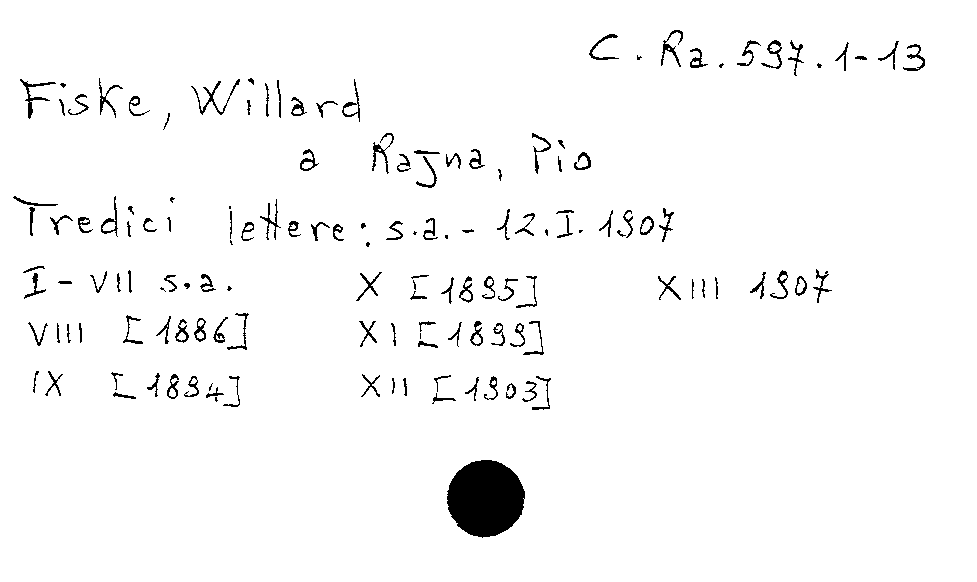 C. Ra. 597. 1-13
Fiske, Willard
a Rajna, Pio
Tredici lettere: s.a. - 12.I. 1907
I - VII s.a. X [1895] XIII 1907
VIII [1886] XI [1899]
IX [1894] XII [1903]